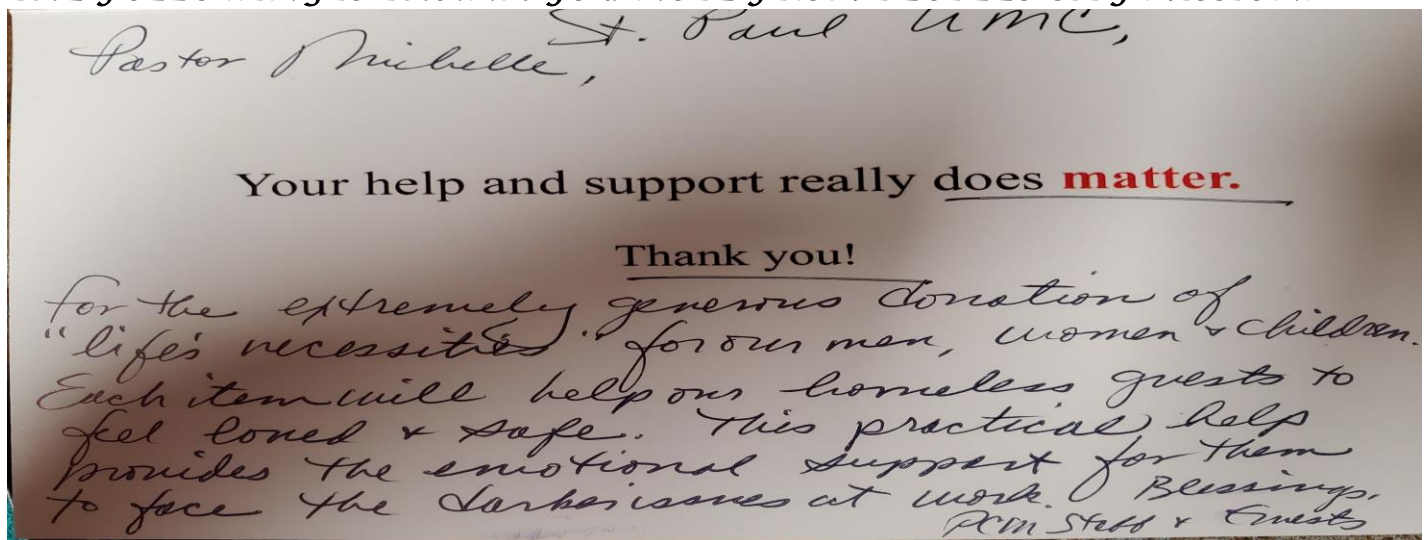 St. Paul UMC,
Pastor Michelle,
Your help and support really does matter.
Thank you!
for the extremely generous donation of
"life's necessities" for our men, women & children.
Each item will help our homeless guests to
feel loved & safe. This practical help
provides the emotional support for them
to face the darker issues at work. Blessings,
PCM Staff & Guests